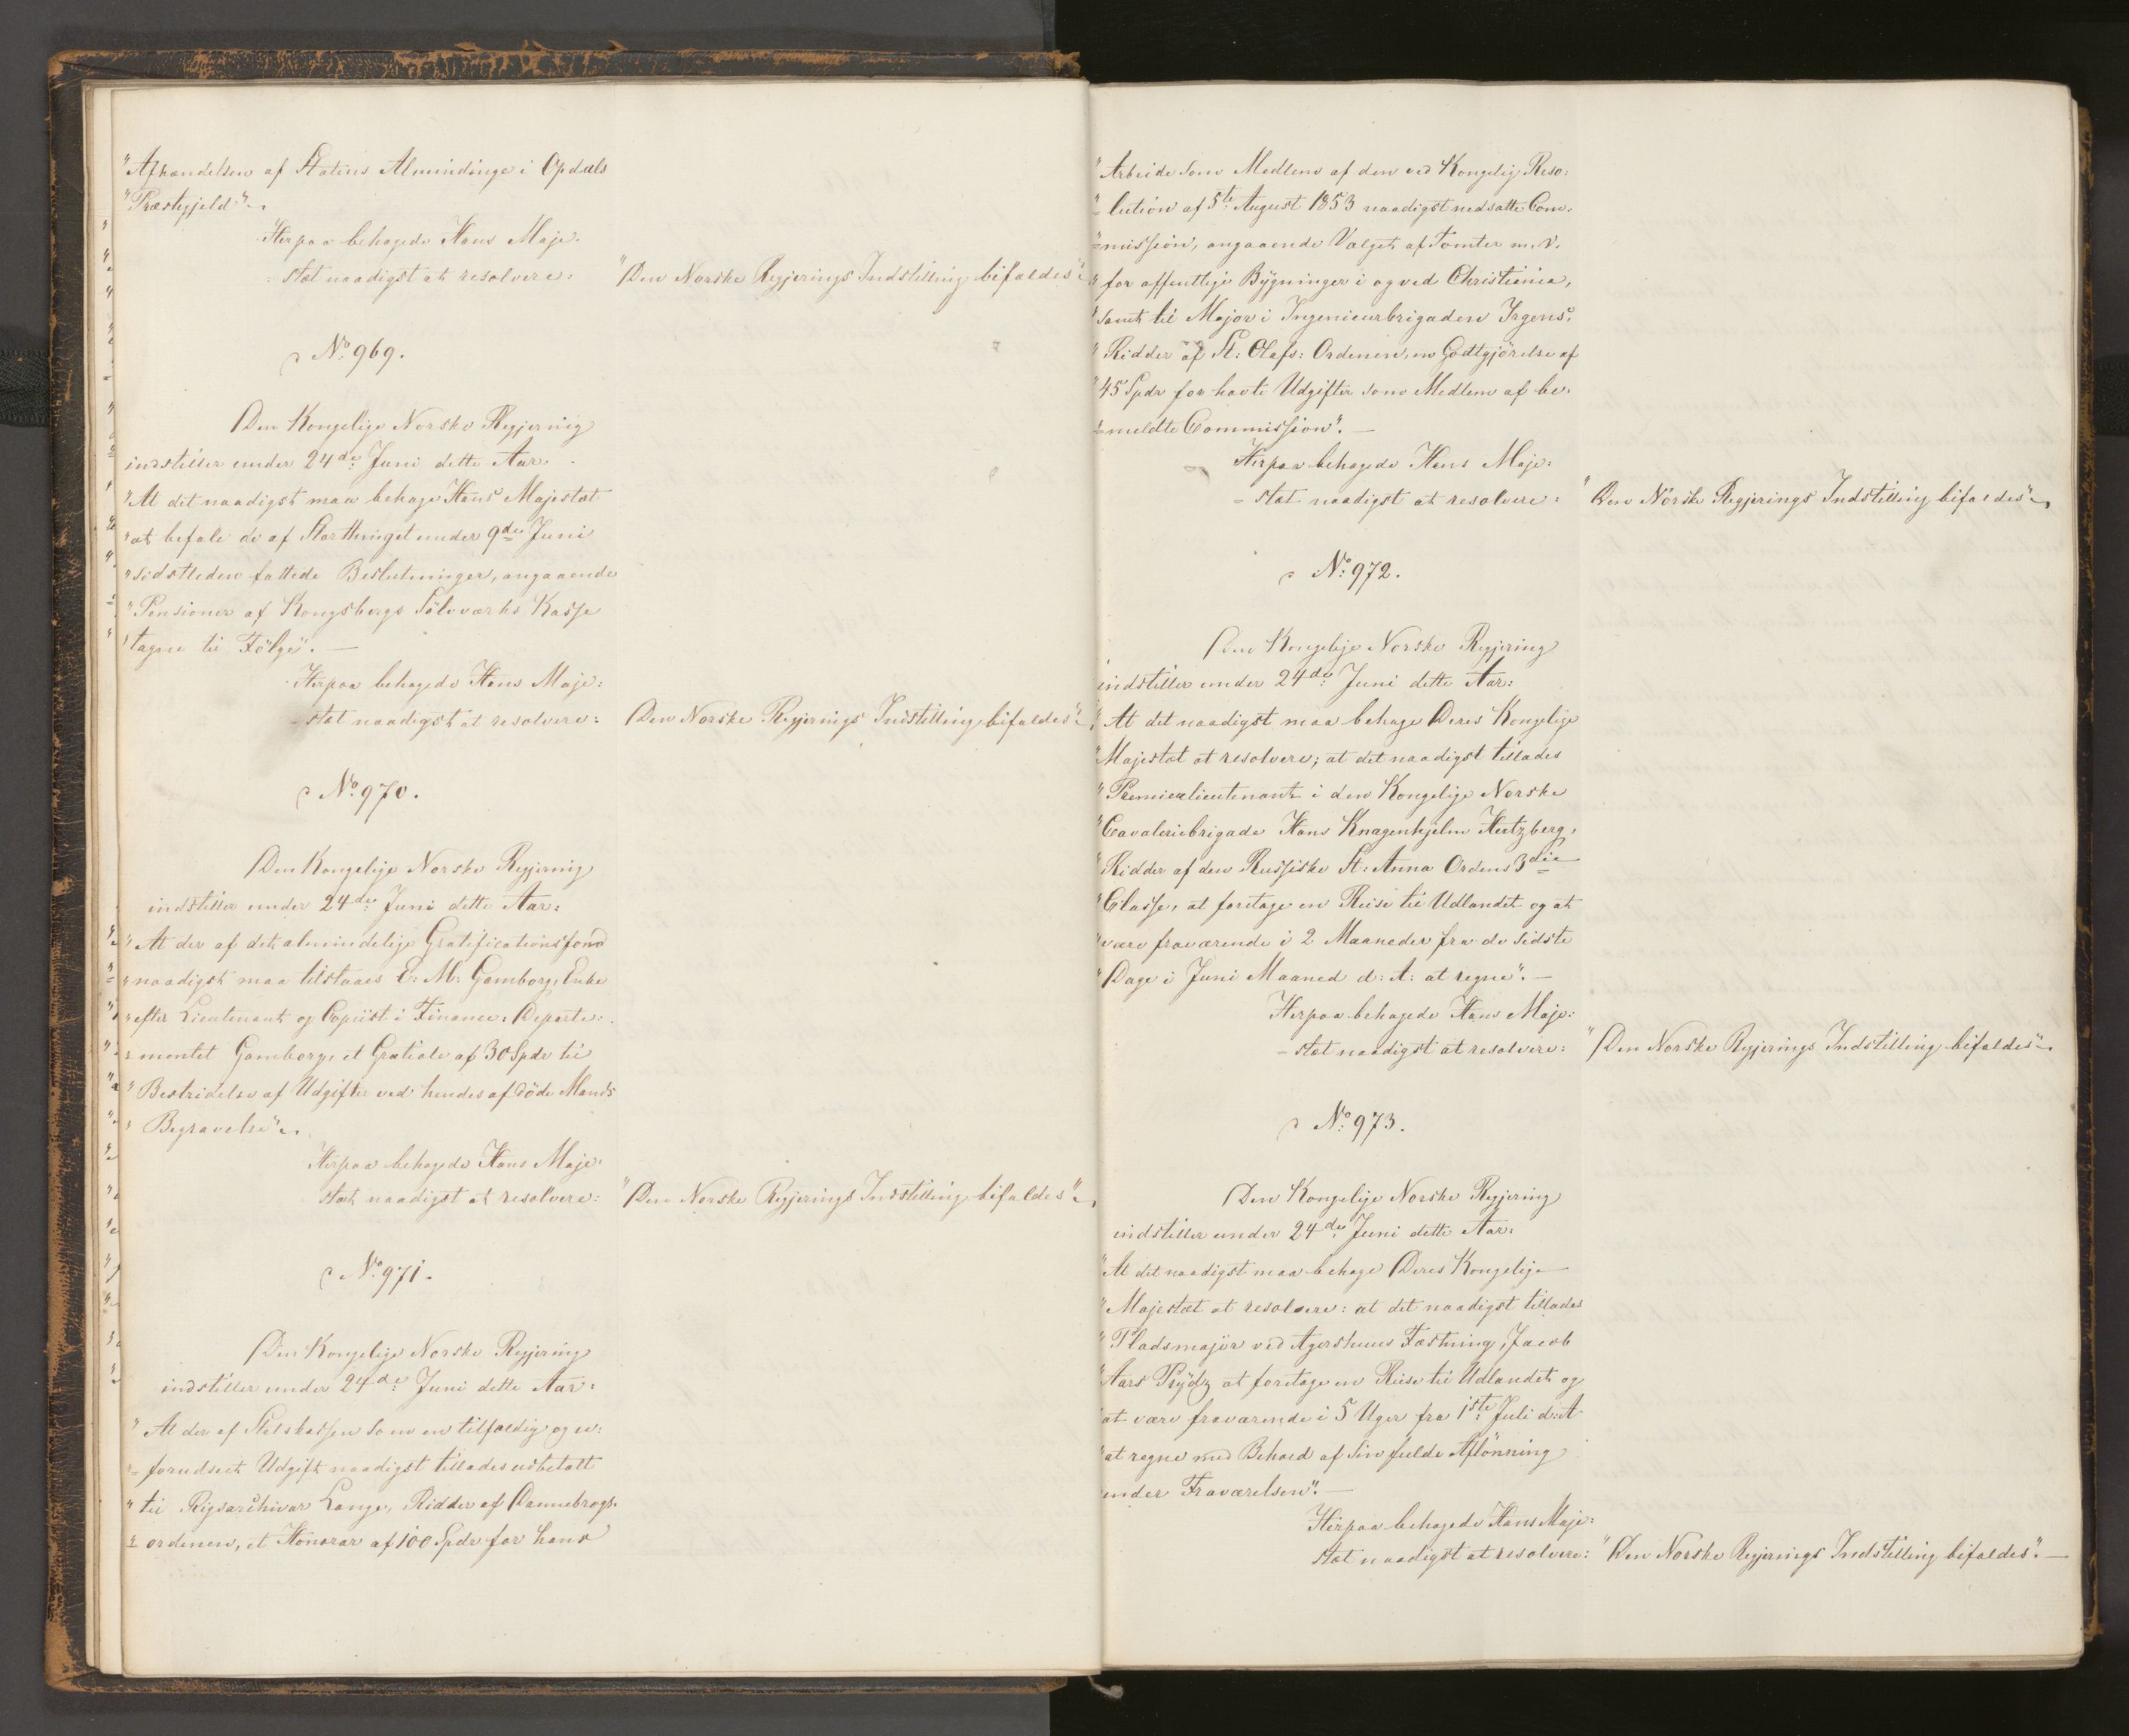 "Afhændelsen af Statens Almindinge i Opdals
"Præstegjeld".
Herpaa behagede Hans Maje-
stæt naadigst at resolvere: "Den Norske Regjerings Indstilling bifaldes".
No. 969.
Den Kongelige Norske Regjering
indstiller under 24de Juni dette Aar:
"At det naadigst maa behage Hans Majestæt
"at befale de af Storthinget under 9de Juni
"sidstleden fattede Beslutninger, angaaende
"Pensioner af Kongsbergs Sölvværks Kasse
"tagne til Fölge". —
Herpaa behagede Hans Maje:
-stæt naadigst at resolvere: Den Norske Regjerings Indstilling bifaldes".
No. 970.
Den Kongelige Norske Regjering
indstiller under 24de Juni dette Aar:
"At der af det almindelige Gratificationsfond
"naadigst maa tilstaaes E: M: Gamborg, Enke
"efter Lieutenant og Copiist i Finance: Departe:
"=mentet Gamborg, et Gratiale af 30 Spdr til
"Bestridelse af Udgifter ved hendes afdöde Mands
"Begravelse".
Herpaa behagede Hans Maje-
stæt naadigst at resolvere: "Den Norske Regjerings Indstilling bifaldes".
No. 971.
Den Kongelige Norske Regjering
indstiller under 24de Juni dette Aar:
"At der af Statskassen som en tilfældig og u:
"=forudseet Udgift naadigst tillades udbetalt
"til Rigsarchivar Lange, Ridder af Dannebrogs-
"=ordenen, et Honorar af 100 Spdr for hans
"Arbeide som Medlem af den ved Kongelig Reso:
"=lution af 5te August 1853 naadigst nedsatte Com-
"=mission, angaaende Valget af Tomter m. v.
"for offentlige Bygninger i og ved Christiania,
"samt til Major i Ingenieurbrigaden Irgens,
"Ridder af St: Olafs: Ordenen, en Godtgjörelse af
"45 Spdr for havte Udgifter som Medlem af be-
"=meldte Commission". —
Herpaa behagede Hans Maje:
-stæt naadigst at resolvere: "Den Norske Regjerings Indstilling bifaldes".
No. 972.
Den Kongelige Norske Regjering
indstiller under 24de Juni dette Aar:
"At det naadigst maa behage Deres Kongelige
"Majestæt at resolvere; at det naadigst tillades
"Premierlieutenant i den Kongelige Norske
"Cavaleriebrigade Hans Knagenhjelm Hertzberg,
"Ridder af den Russiske St: Anna Ordens 3die
"Classe, at foretage en Reise til Udlandet og at
"være fraværende i 2 Maaneder fra de sidste
"Dage i Juni Maaned d: A: at regne". —
Herpaa behagede Hans Maje:
-stæt naadigst at resolvere: "Den Norske Regjerings Indstilling bifaldes".
No. 973.
Den Kongelige Norske Regjering
indstiller under 24de Juni dette Aar:
"At det naadigst maa behage Deres Kongelige
"Majestæt at resolvere: at det naadigst tillades
"Pladsmajor ved Agershuus Fæstning, Jacob
"Aars Prÿdz at foretage en Reise til Udlandet og
"at være fraværende i 5 Uger fra 1ste Juli d: A
"at regne med Behold af sin fulde Aflönning
"under Fraværelsen". —
Herpaa behagede Hans Maje:
stæt naadigst at resolvere: "Den Norske Regjerings Indstilling bifaldes". —